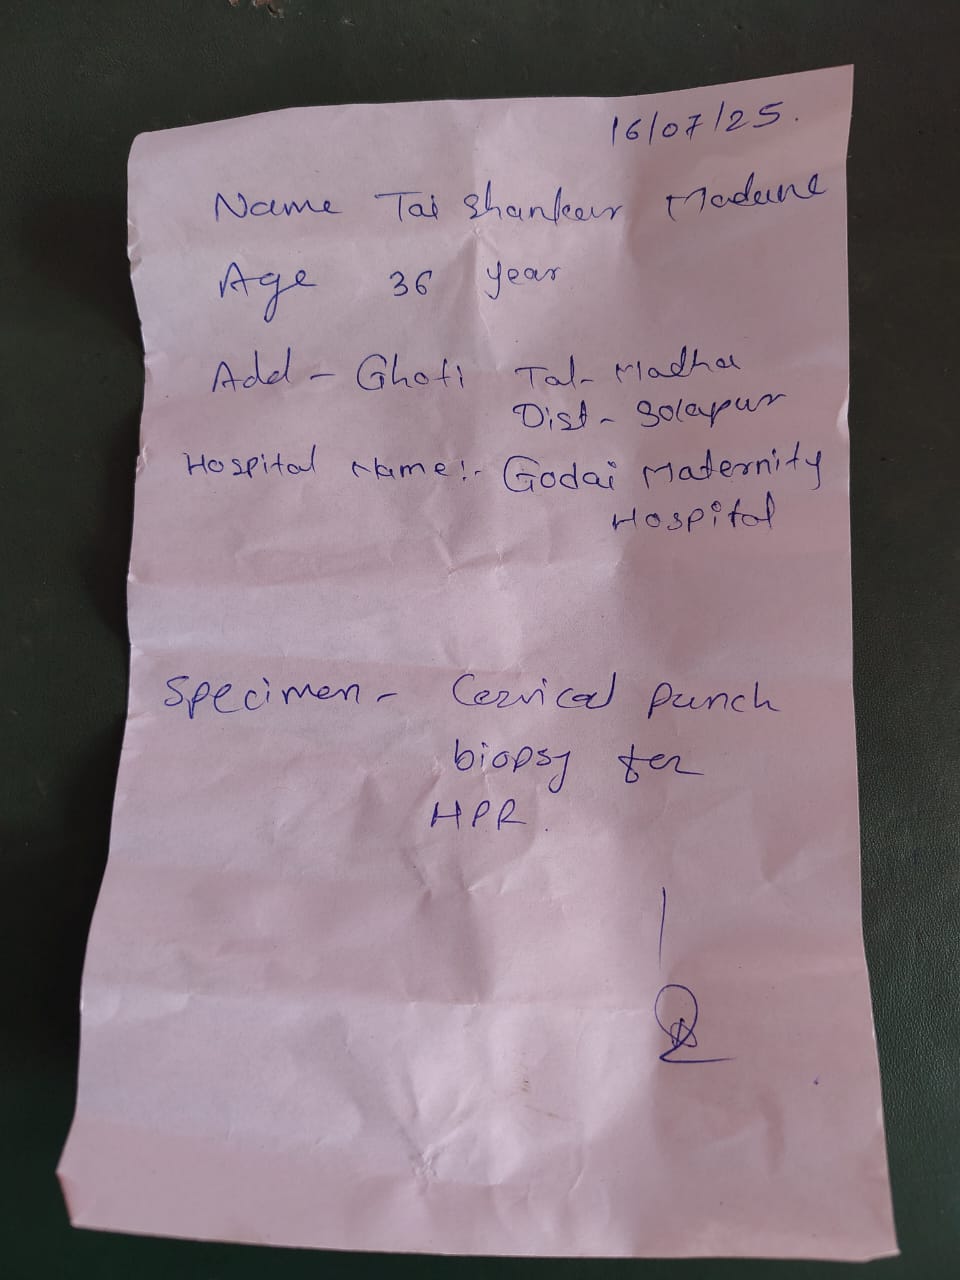 16/07/25.
Name Tai Shankar Madane
Age 36 year
Add - Ghoti Tal- Madha
Dist - Solapur
Hospital Name:- Godai Maternity
Hospital
Specimen - Cervical punch
biopsy for
HPR.